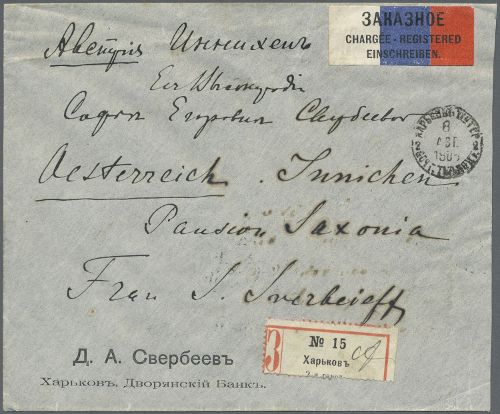 ЗАКАЗНОЕ
CHARGÉE - REGISTERED
EINSCHREIBEN.
Австрія Иннихенъ
Ея Высокородію
Софьи Егоровнѣ Свербеевой
8
Oesterreich. Innichen
Pansion Saxonia
Frau S. Sverbeieff
З
№ 15
Харьковъ
Д. А. Свербеевъ
Харьковъ, Дворянскій Банкъ.